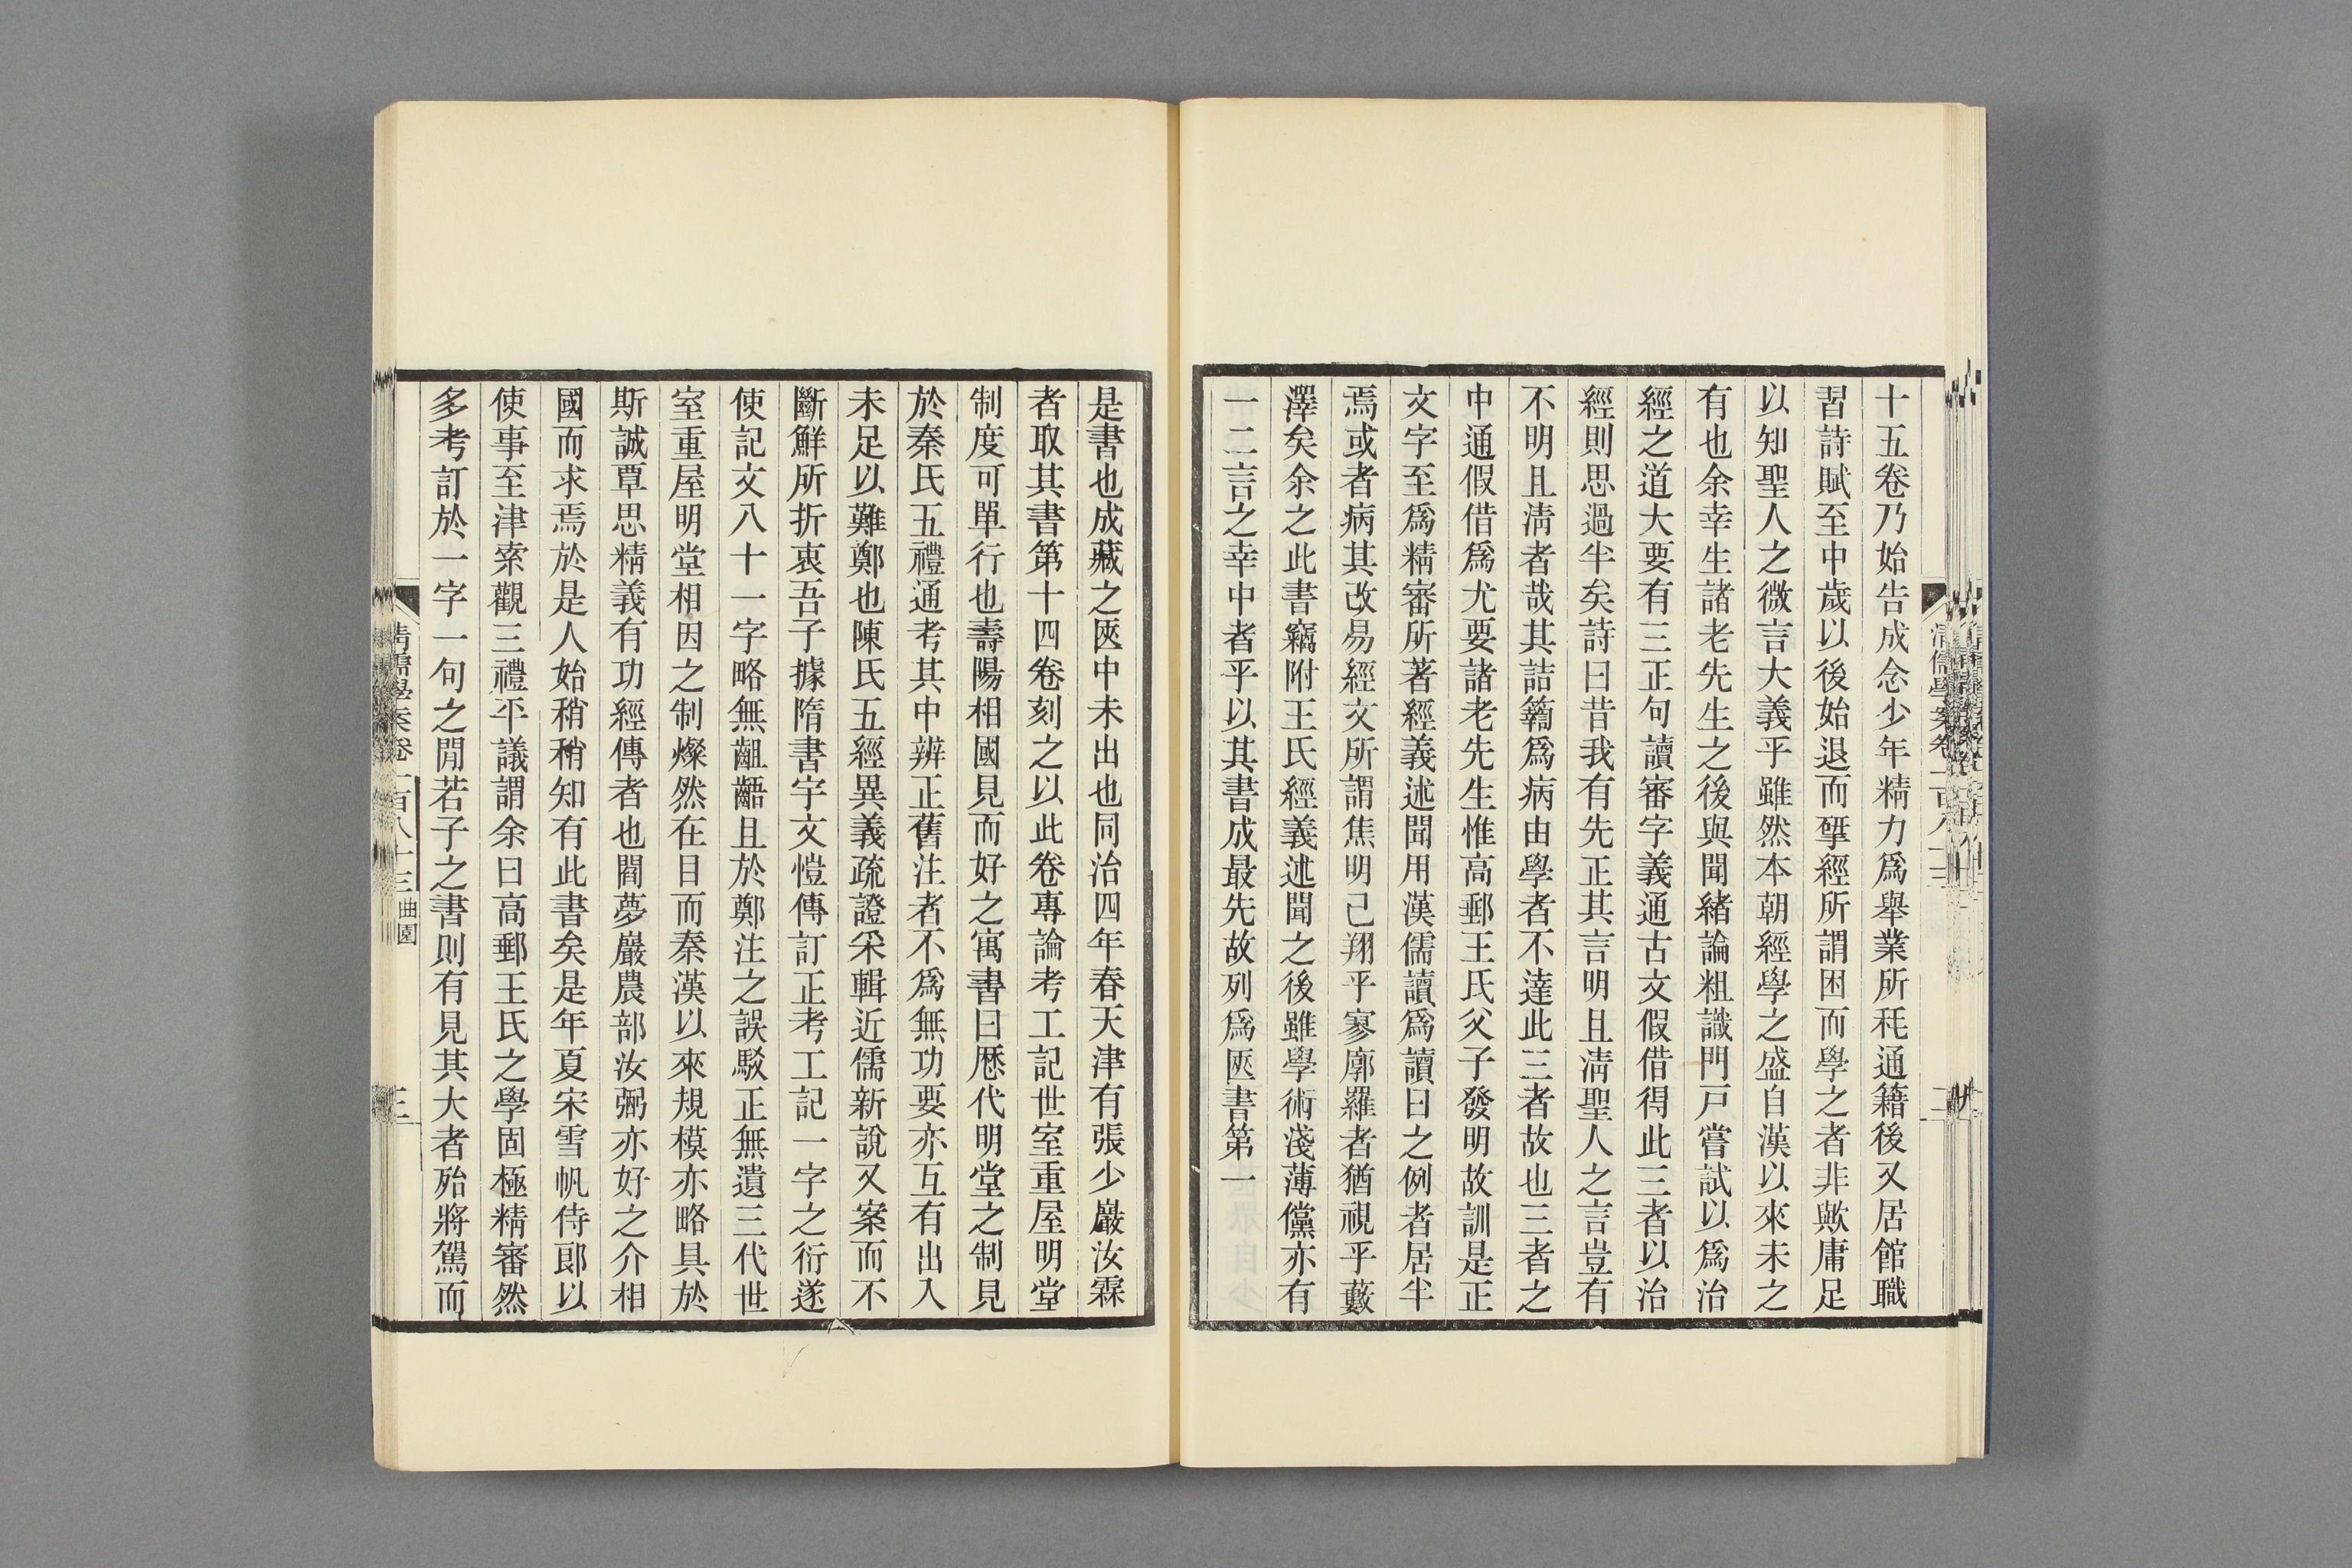 十五卷乃始告成念少年精力爲舉業所秏通籍後又居館職
習詩賦至中歲以後始退而揅經所謂困而學之者非歟庸足
以知聖人之微言大義乎雖然本朝經學之盛自漢以來未之
有也余幸生諸老先生之後與聞緒論粗識門戸嘗試以爲治
經之道大要有三正句讀審字義通古文假借得此三者以治
經則思過半矣詩曰昔我有先正其言明且清聖人之言豈有
不明且清者哉其詰籀爲病由學者不達此三者故也三者之
中通假借爲尤要諸老先生惟高郵王氏父子發明故訓是正
文字至爲精審所著經義述聞用漢儒讀爲讀曰之例者居半
焉或者病其改易經文所謂焦明已翔乎寥廓羅者猶視乎藪
澤矣余之此書竊附王氏經義述聞之後雖學術淺薄儻亦有
一二言之幸中者乎以其書成最先故列爲匧書第一
是書也成藏之匧中未出也同治四年春天津有張少巖汝霖
者取其書第十四卷刻之以此卷專論考工記世室重屋明堂
制度可單行也壽陽相國見而好之寓書曰厯代明堂之制見
於秦氏五禮通考其中辨正舊注者不爲無功要亦互有出入
未足以難鄭也陳氏五經異義疏證采輯近儒新說又案而不
斷鮮所折衷吾子據隋書宇文愷傳訂正考工記一字之衍遂
使記文八十一字略無齟齬且於鄭注之誤駁正無遺三代世
室重屋明堂相因之制燦然在目而秦漢以來規模亦略具於
斯誠覃思精義有功經傳者也閻夢巖農部汝弼亦好之介相
國而求焉於是人始稍稍知有此書矣是年夏宋雪帆侍郎以
使事至津索觀三禮平議謂余曰高郵王氏之學固極精審然
多考訂於一字一句之閒若子之書則有見其大者殆將駕而
清儒學案卷一百八十三 曲園
三